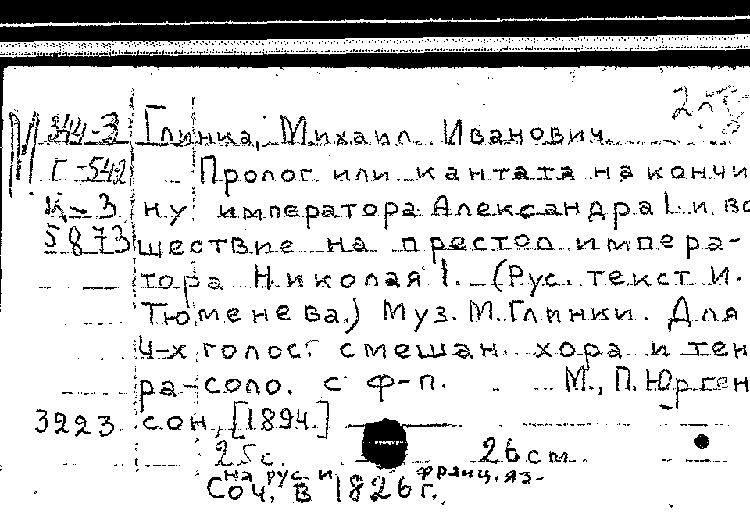 М 344-3 Глинка, Михаил Иванович
Г-542 Пролог или кантата на кончи
К-3 ну императора Александра I и во
5873 шествие на престол импера-
тора Николая I. (Рус. текст И.
Тюменева.) Муз. М. Глинки. Для
4-х голосг смешан. хора и тен
ра-соло. с ф-п. М., П. Юрген
3223 сон, [1894.]
25 с. 26 см
на рус и франц. яз-
Соч. в 1826 г.